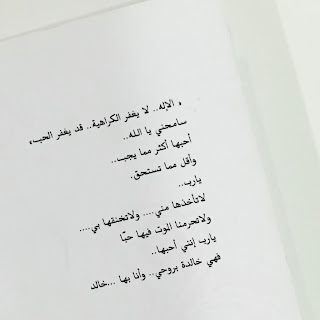 « الإله.. لا يغفر الكراهية.. قد يغفر الحب»
سامحني يا الله..
أحبها أكثر مما يجب..
وأقل مما تستحق.
يارب..
لاتأخذها مني.... ولاتخنقها بي....
ولاتحرمنا الموت فيها حبّا
يارب إنني أحبها..
فهي خالدة بروحي.. وأنا بها ...خالد